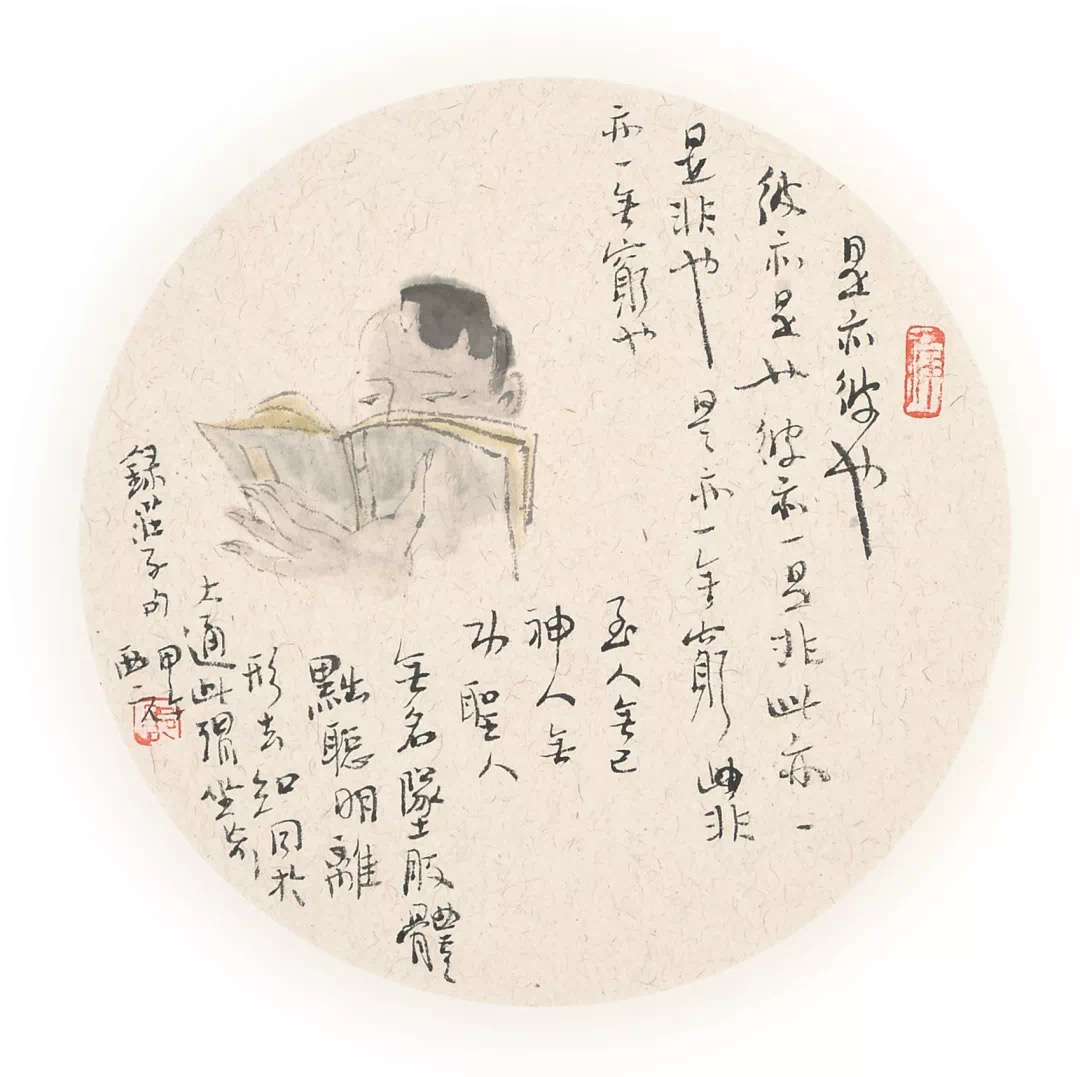 是亦彼也
彼亦是也彼亦一是非此亦一
是非也是亦一無窮非
亦一無窮也
至人無己
神人無
功聖人
無名墜肢體
黜聰明離
形去知同於
大通此謂坐忘
錄莊子句
甲午